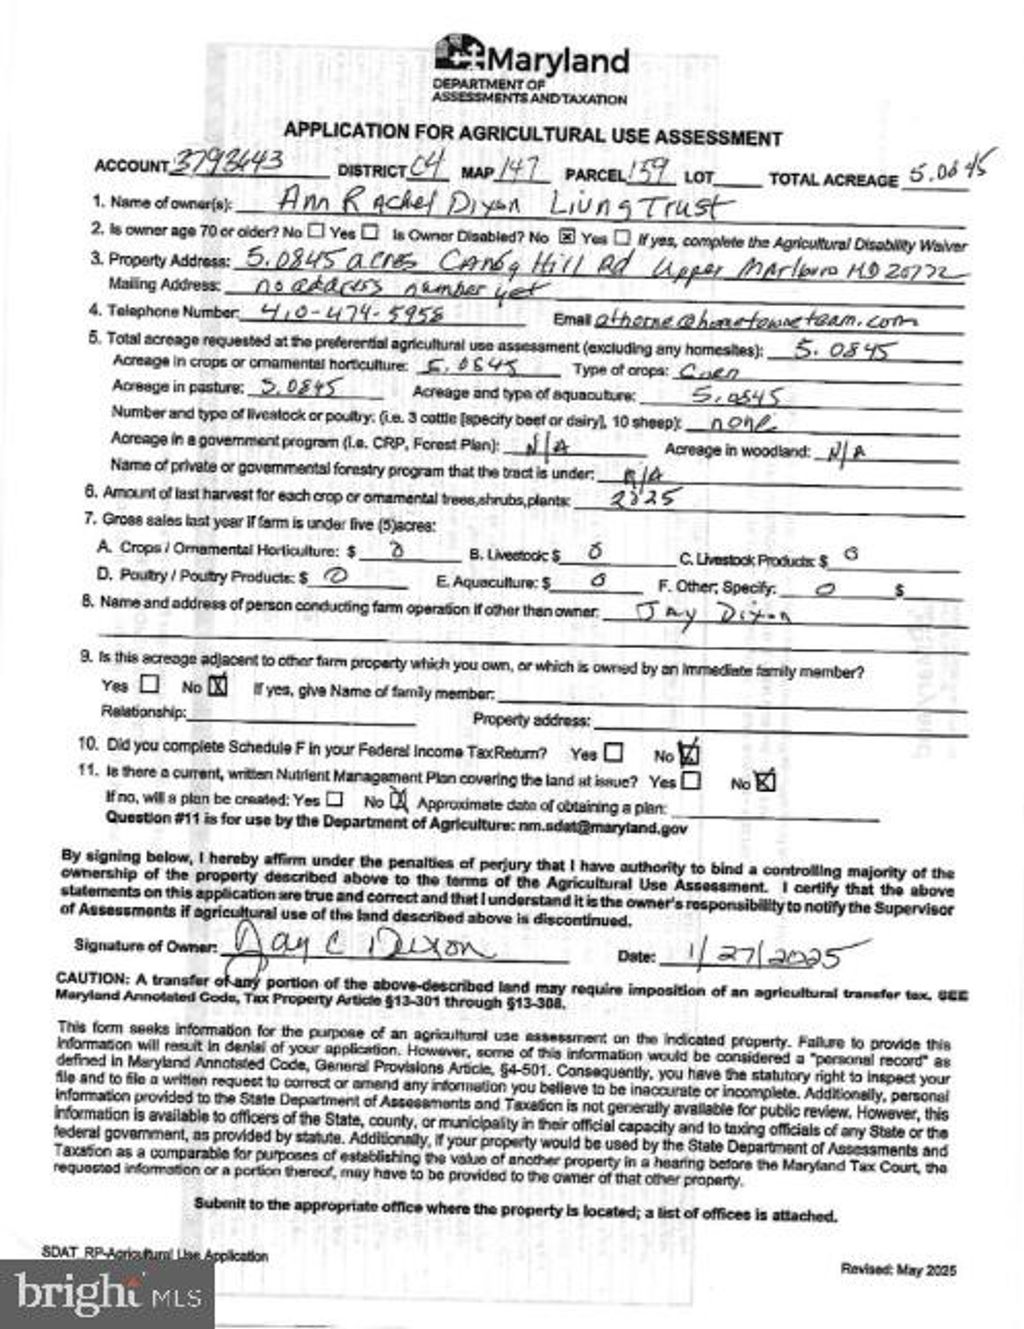 Maryland
DEPARTMENT OF
ASSESSMENTS AND TAXATION
APPLICATION FOR AGRICULTURAL USE ASSESSMENT
ACCOUNT 3793643 DISTRICT 04 MAP 147 PARCEL 159 LOT TOTAL ACREAGE 5.0845
1. Name of owner(s): Ann Rachel Dixon Living Trust
2. Is owner age 70 or older? No ☐ Yes ☐ Is Owner Disabled? No ☒ Yes ☐ If yes, complete the Agricultural Disability Waiver
3. Property Address: 5.0845 acres Candy Hill Rd Upper Marlboro MD 20772
Mailing Address: no address number yet
4. Telephone Number: 410-474-5958 Email athorne@hometowneteam.com
5. Total acreage requested at the preferential agricultural use assessment (excluding any homesites): 5.0845
Acreage in crops or ornamental horticulture: 5.0845 Type of crops: Corn
Acreage in pasture: 5.0845 Acreage and type of aquaculture: 5.0845
Number and type of livestock or poultry: (i.e. 3 cattle [specify beef or dairy], 10 sheep): none
Acreage in a government program (i.e. CRP, Forest Plan): N/A Acreage in woodland: N/A
Name of private or governmental forestry program that the tract is under: N/A
6. Amount of last harvest for each crop or ornamental trees,shrubs,plants: 2025
7. Gross sales last year if farm is under five (5)acres:
A. Crops / Ornamental Horticulture: $ 0 B. Livestock: $ 0 C. Livestock Products: $ 0
D. Poultry / Poultry Products: $ 0 E. Aquaculture: $ 0 F. Other; Specify: 0 $
8. Name and address of person conducting farm operation if other than owner: Jay Dixon
9. Is this acreage adjacent to other farm property which you own, or which is owned by an immediate family member?
Yes ☐ No ☒ If yes, give Name of family member:
Relationship: Property address:
10. Did you complete Schedule F in your Federal Income Tax Return? Yes ☐ No ☒
11. Is there a current, written Nutrient Management Plan covering the land at issue? Yes ☐ No ☒
If no, will a plan be created: Yes ☐ No ☒ Approximate date of obtaining a plan:
Question #11 is for use by the Department of Agriculture: nm.sdat@maryland.gov
By signing below, I hereby affirm under the penalties of perjury that I have authority to bind a controlling majority of the
ownership of the property described above to the terms of the Agricultural Use Assessment. I certify that the above
statements on this application are true and correct and that I understand it is the owner's responsibility to notify the Supervisor
of Assessments if agricultural use of the land described above is discontinued.
Signature of Owner: Jay C Dixon Date: 1/27/2025
CAUTION: A transfer of any portion of the above-described land may require imposition of an agricultural transfer tax. SEE
Maryland Annotated Code, Tax Property Article §13-301 through §13-308.
This form seeks information for the purpose of an agricultural use assessment on the indicated property. Failure to provide this
information will result in denial of your application. However, some of this information would be considered a "personal record" as
defined in Maryland Annotated Code, General Provisions Article, §4-501. Consequently, you have the statutory right to inspect your
file and to file a written request to correct or amend any information you believe to be inaccurate or incomplete. Additionally, personal
information provided to the State Department of Assessments and Taxation is not generally available for public review. However, this
information is available to officers of the State, county, or municipality in their official capacity and to taxing officials of any State or the
federal government, as provided by statute. Additionally, if your property would be used by the State Department of Assessments and
Taxation as a comparable for purposes of establishing the value of another property in a hearing before the Maryland Tax Court, the
requested information or a portion thereof, may have to be provided to the owner of that other property.
Submit to the appropriate office where the property is located; a list of offices is attached.
SDAT_RP-Agricultural Use Application
Revised: May 2025
bright MLS